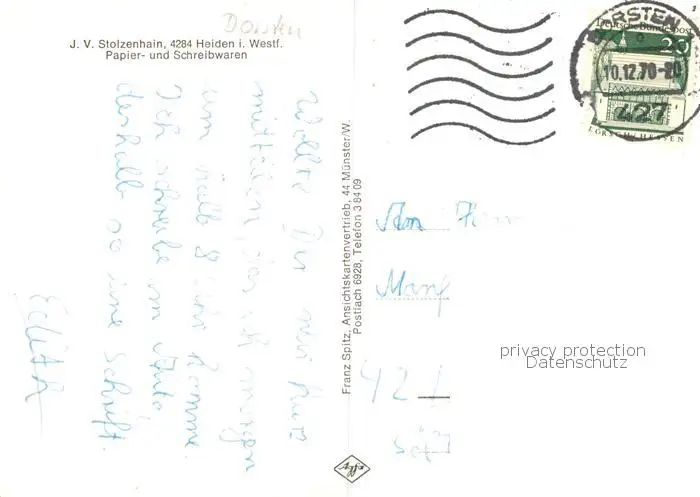 Dorsten
J. V. Stolzenhain, 4284 Heiden i. Westf.
Papier- und Schreibwaren
Wollte Dir nur kurz
mitteilen, das ich morgen
um halb 8 Uhr komme.
Ich schreibe im Auto
deshalb so eine Schrift.
Franz Spitz, Ansichtskartenvertrieb, 44 Münster/W.
Postfach 6928, Telefon 3 84 09
DORSTEN
10.12.70-20
427
Deutsche Bundespost
20
LORSCH/HESSEN
An
Manf
42 1
privacy protection
Datenschutz